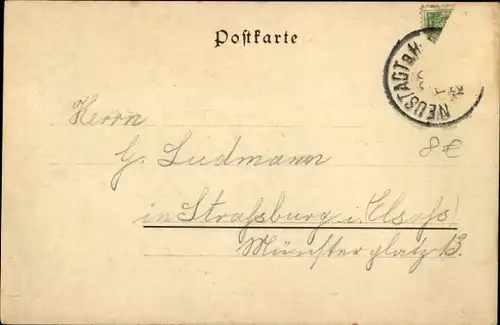 Postkarte
NEUSTADT a.H.
8 €
Herrn
G. Ludmann
in Straßburg i. Elsaß
Münsterplatz 13.